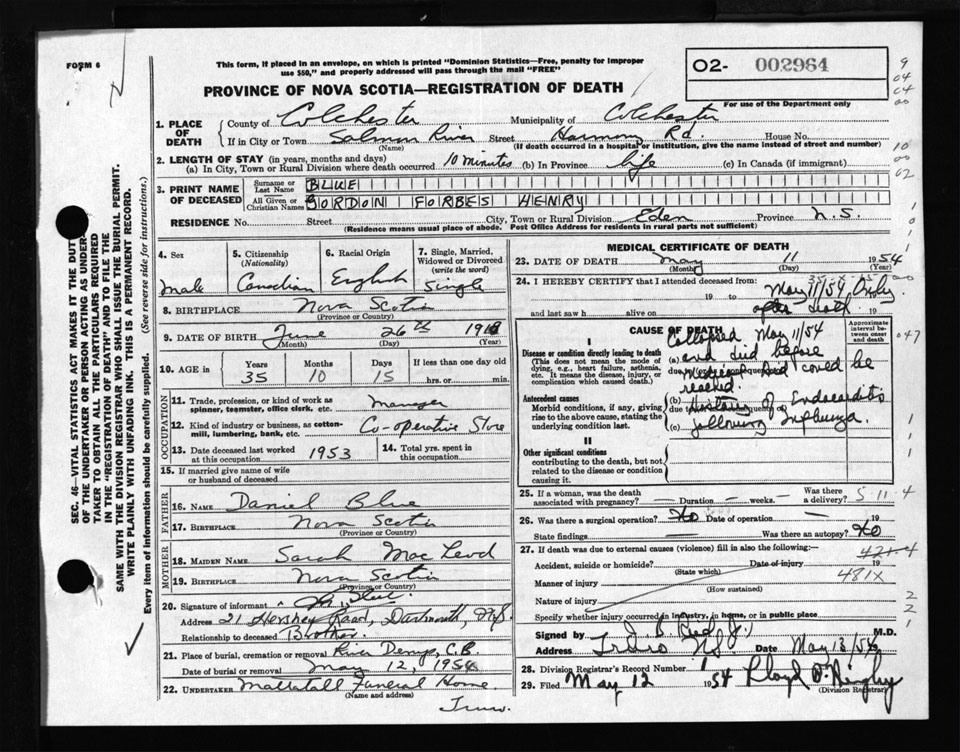 FORM 6
This form, if placed in an envelope, on which is printed "Dominion Statistics—Free, penalty for improper
use $50," and properly addressed will pass through the mail "FREE"
O2- 002964
For use of the Department only
PROVINCE OF NOVA SCOTIA—REGISTRATION OF DEATH
1. PLACE OF DEATH
County of Colchester Municipality of Colchester
If in City or Town Salmon River Street Harmony Rd. House No.
(Name) (If death occurred in a hospital or institution, give the name instead of street and number)
2. LENGTH OF STAY (in years, months and days)
(a) In City, Town or Rural Division where death occurred 10 minutes (b) In Province life (c) In Canada (if immigrant)
3. PRINT NAME OF DECEASED
Surname or Last Name BLUE
All Given or Christian Names GORDON FORBES HENRY
RESIDENCE No. Street City, Town or Rural Division Eden Province N.S.
(Residence means usual place of abode. Post Office Address for residents in rural parts not sufficient)
4. Sex Male
5. Citizenship (Nationality) Canadian
6. Racial Origin English
7. Single, Married, Widowed or Divorced (write the word) Single
8. BIRTHPLACE Nova Scotia
(Province or Country)
9. DATE OF BIRTH June 26th 1918
(Month) (Day) (Year)
10. AGE in Years 35 Months 10 Days 15 If less than one day old hrs. or min.
OCCUPATION
11. Trade, profession, or kind of work as spinner, teamster, office clerk, etc. Manager
12. Kind of industry or business, as cotton-mill, lumbering, bank, etc. Co-operative Store
13. Date deceased last worked at this occupation 1953
14. Total yrs. spent in this occupation
15. If married give name of wife or husband of deceased
FATHER
16. NAME Daniel Blue
17. BIRTHPLACE Nova Scotia
MOTHER
18. MAIDEN NAME Sarah MacLeod
19. BIRTHPLACE Nova Scotia
(Province or Country)
20. Signature of informant
Address 21 Hershey Road, Dartmouth, N.S.
Relationship to deceased Brother.
21. Place of burial, cremation or removal River Denys, C.B.
Date of burial or removal May 12, 1954
22. UNDERTAKER Mattatall Funeral Home
(Name and address)
Truro.
MEDICAL CERTIFICATE OF DEATH
23. DATE OF DEATH May 11 1954
(Month) (Day) (Year)
24. I HEREBY CERTIFY that I attended deceased from:
19 to May 11/54 Only 19
and last saw h alive on after death 19
CAUSE OF DEATH
Approximate interval between onset and death
I
Disease or condition directly leading to death
(This does not mean the mode of dying, e.g., heart failure, asthenia, etc. It means the disease, injury, or complication which caused death.)
(a) Collapsed May 11/54
and died before
medical aid could be
reached.
Antecedent causes
Morbid conditions, if any, giving rise to the above cause, stating the underlying condition last.
(b) History of Endocarditis
(c) following Influenza.
II
Other significant conditions
contributing to the death, but not related to the disease or condition causing it.
25. If a woman, was the death associated with pregnancy? — Duration — weeks. — Was there a delivery? 5 11 4
26. Was there a surgical operation? No Date of operation — 19
State findings — Was there an autopsy? No
27. If death was due to external causes (violence) fill in also the following:—
421.4
Accident, suicide or homicide? Date of injury 19
(State which)
481X
Manner of injury
(How sustained)
Nature of injury
Specify whether injury occurred in industry, in home, or in public place
Signed by M.D.
Address Truro N.S. Date May 13/54
28. Division Registrar's Record Number 1
29. Filed May 12 1954 Lloyd
(Division Registrar)
SEC. 46—VITAL STATISTICS ACT MAKES IT THE DUTY
OF THE UNDERTAKER OR PERSON ACTING AS UNDER-
TAKER TO OBTAIN ALL THE PARTICULARS REQUIRED
IN THE "REGISTRATION OF DEATH" AND TO FILE THE
SAME WITH THE DIVISION REGISTRAR WHO SHALL ISSUE THE BURIAL PERMIT.
WRITE PLAINLY WITH UNFADING INK. THIS IS A PERMANENT RECORD.
Every item of information should be carefully supplied. (See reverse side for instructions.)
9
04
04
00
10
00
02
047